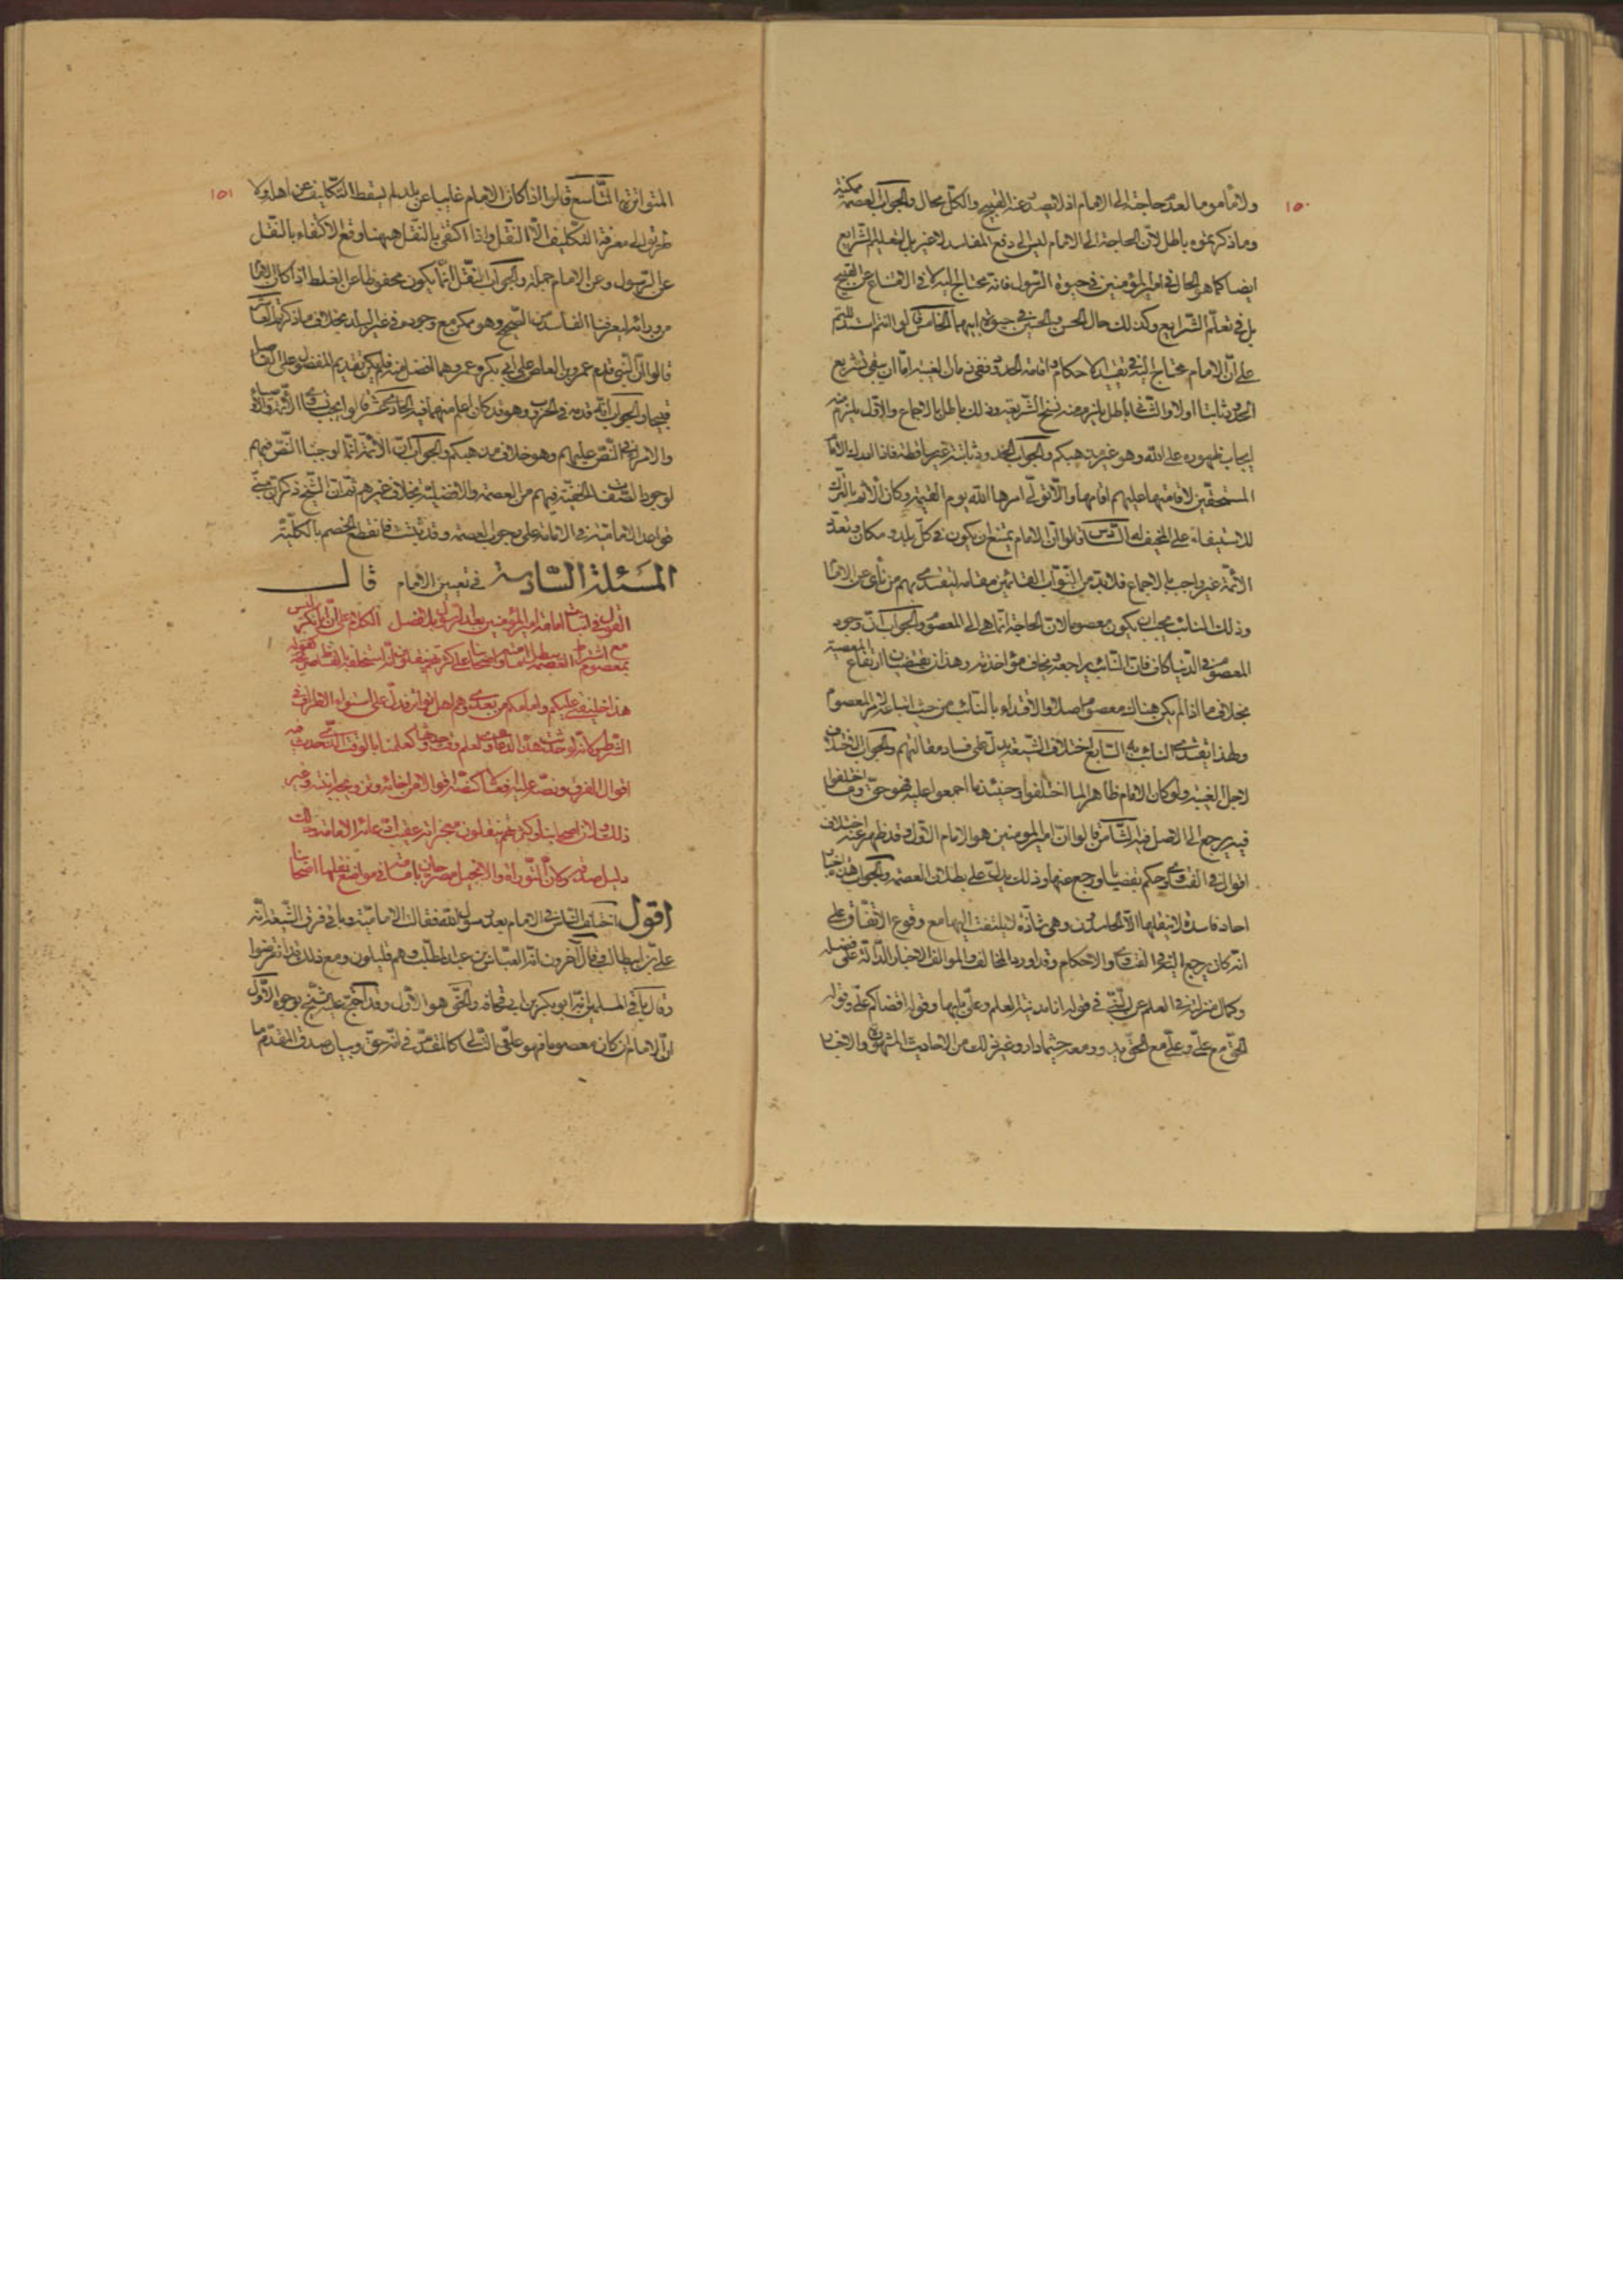 ١٥٠
ولا مأموما لعدم حاجته الى الامام اذ لا يصدر عنه القبيح والكل محال والجواب العصمة ممكنة
وما ذكرتموه باطل لان الحاجة الى الامام ليس الى دفع المفاسد لا غير بل لتعليم الشرايع
ايضا كما هو الحال في امير المؤمنين في حيوة الرسول فانه محتاج اليه لا في الامتناع عن القبيح
بل في تعلم الشرايع وكذلك حال الحسن والحسين في حيوة ابيهما الخامس قالوا انتم استدللتم
على ان الامام محتاج اليه في تنفيذ الاحكام واقامة الحدود ففي زمان الغيبة اما ان يبقى تشريع
الحدود ثابتا اولا والثاني باطل يلزم منه نسخ الشريعة وذلك باطل بالاجماع والاول يلزم منه
ايجاب ظهوره على الله وهو غير مذهبكم والجواب الحدود ثابتة غير ساقطة فاذا ادرك الامام
المستحقين لاقامتها عليهم اقامها والا تولى امرها الله يوم القيمة وكان الاثم بالترك
للاستيفاء على المخيف له السادس قالوا ان الامام يمتنع ان يكون في كل بلد ومكان وتعدد
الائمة غير واجب بالاجماع فلا بد من النواب القائمين مقامه ليقتدي بهم من نأى عن الامام
وذلك النائب يجب ان يكون معصوما لان الحاجة انما هي الى المعصوم والجواب ان وجود
المعصوم في الدنيا كاف فان النائب يراجعه ويخاف مؤاخذته وهذان يقتضيان ارتفاع المعصية
بخلاف ما اذا لم يكن هناك معصوم اصلا والاقتداء بالنائب من حيث اتباعه لامر المعصوم
ولهذا يقتدى النائب به السابع اختلاف الشيعة يدل على فساد مقالتهم والجواب الاختلاف
لاجل الغيبة ولو كان الامام ظاهرا لما اختلفوا وحينئذ ما اجمعوا عليه فهو حق وما اختلفوا
فيه يرجع الى الاصل فيه الثامن قالوا ان امير المؤمنين هو الامام الاول وقد ظهر عنه اختلاف
اقوال في الفتاوى وحكم بقضايا ورجع عنها وذلك يدل على بطلان العصمة والجواب هذه اخبار
احاد فاسدة لا ينقلها الا الحاسدون وهي شاذة لا يلتفت اليها مع وقوع الاتفاق على
انه كان يرجع اليه في الفتاوى والاحكام وقد اورد المخالف والموالف الاخبار الدالة على فضله
وكمال منزلته في العلم عن النبي في قوله انا مدينة العلم وعلي بابها وقوله اقضاكم علي وقوله
الحق مع علي وعلي مع الحق يدور معه حيثما دار وغير ذلك من الاحاديث المشهورة والاخبار
١٥١
المتواترة التاسع قالوا اذا كان الامام غايبا عن بلد لم يسقط التكليف عن اهله ولا
طريق الى معرفة التكليف الا النقل واذا اكتفي بالنقل ههنا وقع الاكتفاء بالنقل
عن الرسول وعن الامام جملة والجواب النقل انما يكون محفوظا عن الغلط اذا كان الامام
من ورائه ليعرفنا الفاسد من الصحيح وهو ممكن مع وجوده في غير البلد بخلاف ما ذكرتم العاشر
قالوا ان النبي قدم عمرو بن العاص على ابي بكر وعمر وهما افضل منه فلم يكن تقديم المفضول على الفاضل
قبيحا والجواب انه قدمه في الحرب وهو قد كان اعلم منهما فيه الحادي عشر قالوا يجب في الائمة
والامراء النص عليهم وهو خلاف مذهبكم والجواب ان الائمة انما اوجبنا النص فيهم
لوجود الصفات الخفية فيهم من العصمة والافضلية بخلاف غيرهم ثم ان الشيخ ذكر ان مبنى
قواعد الامامية في الامامة على وجوب العصمة وقد ثبتت فانقطع الخصم بالكلية
المسئلة السادسة في تعيين الامام قال
القول في اثبات امامة امير المؤمنين بعد الرسول بلا فصل الكلام على ان ابا بكر ليس
بمعصوم مع اشتراط العصمة يبطل امامته واصحابنا على كثرتهم ينقلون انه استخلفه بالفاظ صريحة كقوله
هذا خليفتي عليكم وامامكم من بعدي وهم اهل تواتر فدل على استواء الاطراف في
الشرط وكانه لو حدثت هذه الدعاوى لعلم وقت حدوثها كعلمنا بالوقت الذي حدث فيه
اقوال الفرق ونص عليه
ذلك ولان اصحابنا ينقلون معجزاته عقيب ادعائه الامامة وذلك
دليل صدقه وكان التوراة والانجيل مصرحان بامامته في مواضع نقلها اصحابنا
اقول اختلف الناس في الامام بعد رسول الله فقالت الامامية وباقي فرق الشيعة انه
علي بن ابي طالب وقال آخرون انه العباس بن عبد المطلب وهم قليلون ومع ذلك فقد انقرضوا
وقال باقي المسلمين انه ابو بكر بن ابي قحافة والحق هو الاول وقد احتج عليه الشيخ بوجوه الاول
ان الامام ان كان معصوما فهو علي والتالي كالمقدم في انه حق وبيان صدق المقدم ما